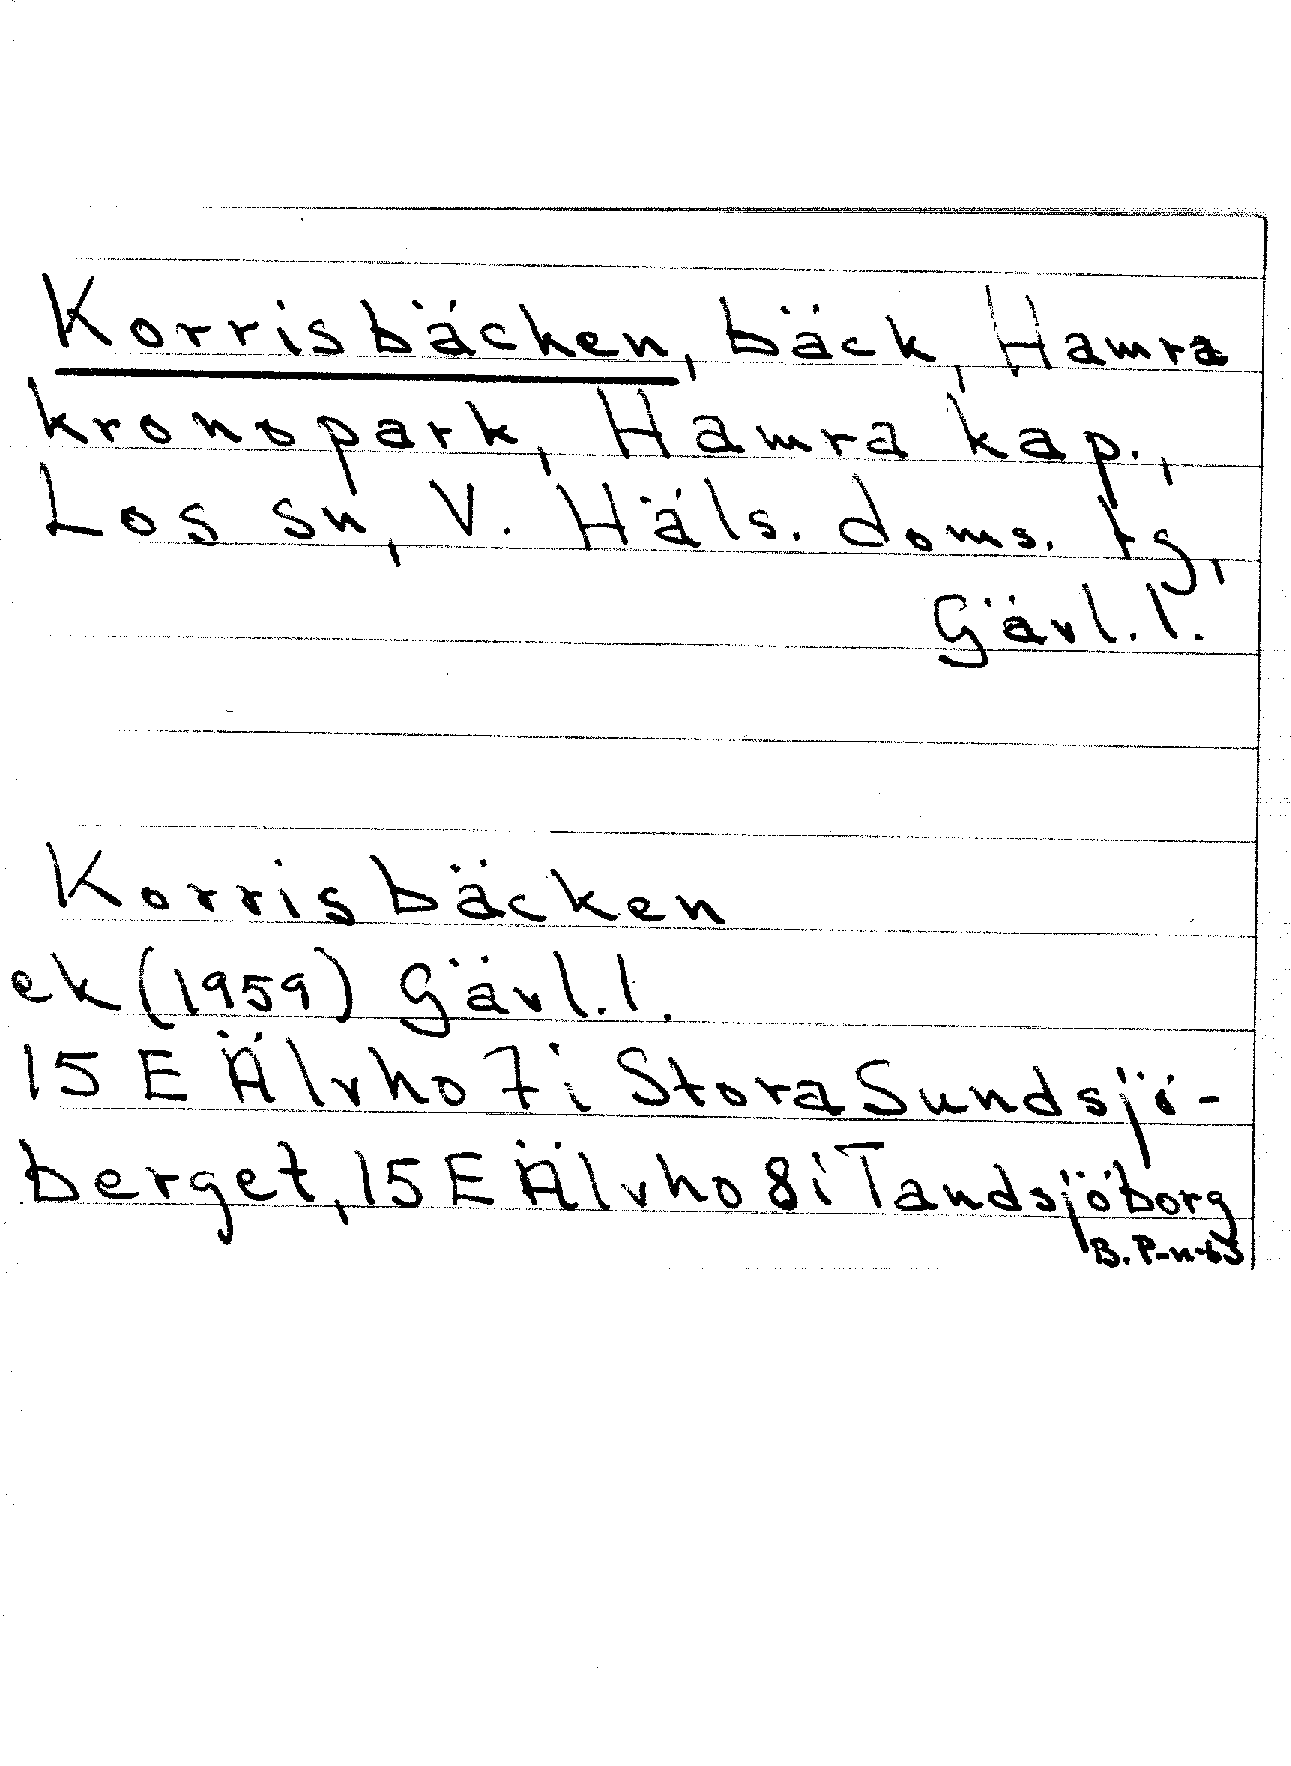 Korrisbäcken, bäck, Hamra
kronopark, Hamra kap.,
Los sn, V. Häls. doms. tg,
Gävl. l.
Korrisbäcken
ek (1959) Gävl. l.
15 E Älvho 7 i Stora Sundsjö-
berget, 15 E Älvho 8 i Tandsjöborg
B. P-n-63